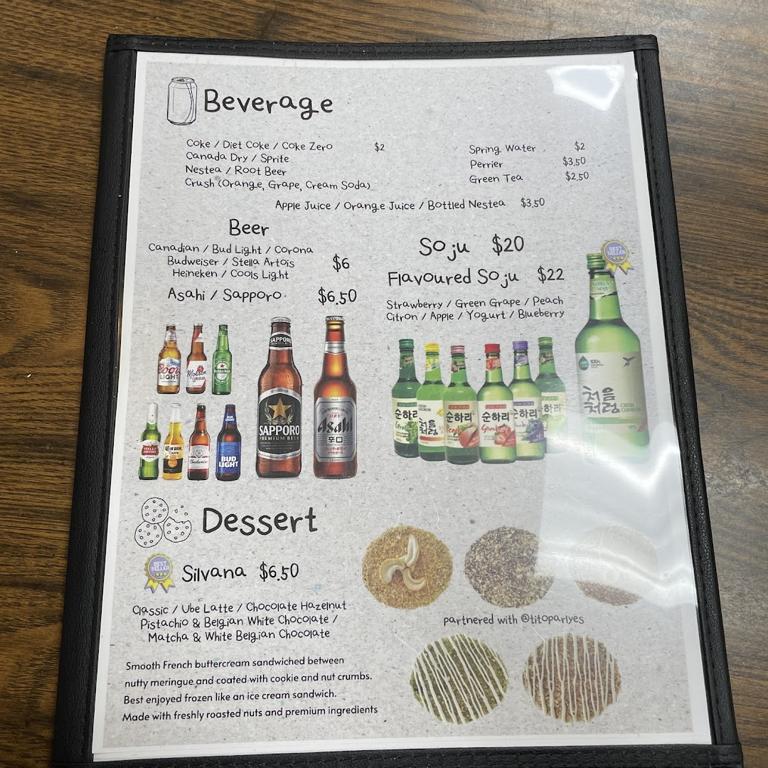 Beverage
Coke / Diet Coke / Coke Zero $2
Canada Dry / Sprite
Nestea / Root Beer
Crush (Orange, Grape, Cream Soda)
Spring Water $2
Perrier $3.50
Green Tea $2.50
Apple Juice / Orange Juice / Bottled Nestea $3.50
Beer
Canadian / Bud Light / Corona
Budweiser / Stella Artois
Heineken / Cools Light
$6
Asahi / Sapporo $6.50
Soju $20
Flavoured Soju $22
Strawberry / Green Grape / Peach
Citron / Apple / Yogurt / Blueberry
BEST SELLER
Coors
LIGHT
SAPPORO
SAPPORO
PREMIUM BEER
Asahi
辛口
BUD
LIGHT
순하리
순하리
순하리
처음
처럼
Dessert
BEST SELLER
Silvana $6.50
Classic / Ube Latte / Chocolate Hazelnut
Pistachio & Belgian White Chocolate /
Matcha & White Belgian Chocolate
partnered with @titopariyes
Smooth French buttercream sandwiched between
nutty meringue and coated with cookie and nut crumbs.
Best enjoyed frozen like an ice cream sandwich.
Made with freshly roasted nuts and premium ingredients